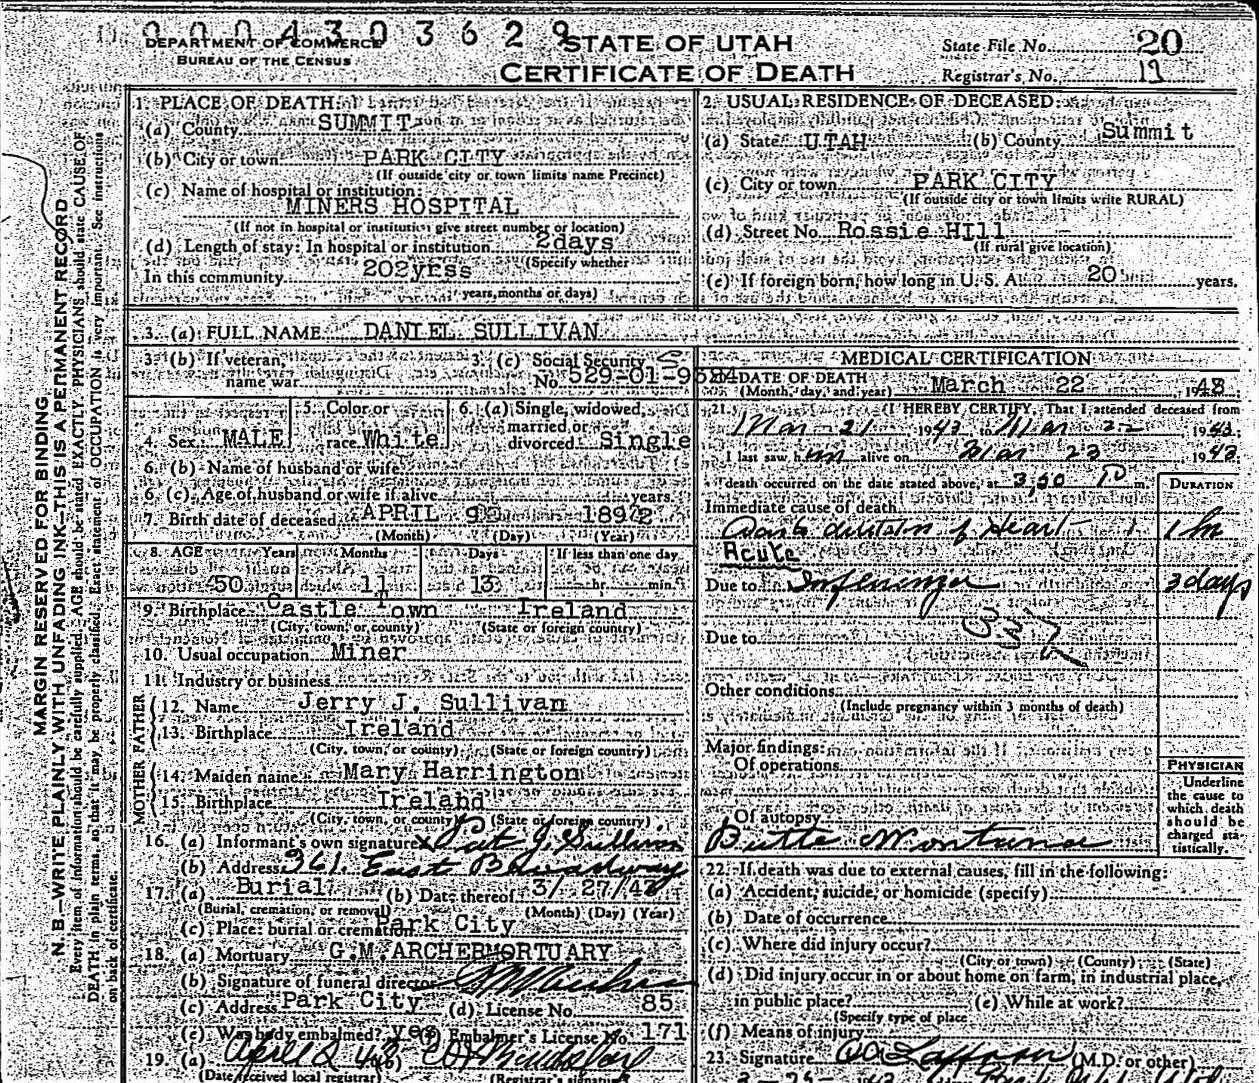 0 0 0 4 3 0 3 6 2 9
DEPARTMENT OF COMMERCE
BUREAU OF THE CENSUS
STATE OF UTAH
CERTIFICATE OF DEATH
State File No. 20
Registrar's No.
MARGIN RESERVED FOR BINDING
N. B.—WRITE PLAINLY WITH UNFADING INK—THIS IS A PERMANENT RECORD
Every item of information should be carefully supplied. AGE should be stated EXACTLY. PHYSICIANS should state CAUSE OF
DEATH in plain terms, so that it may be properly classified. Exact statement of OCCUPATION is very important. See instructions
on back of certificate.
1. PLACE OF DEATH:
(a) County SUMMIT
(b) City or town PARK CITY
(If outside city or town limits name Precinct)
(c) Name of hospital or institution:
MINERS HOSPITAL
(If not in hospital or institution give street number or location)
(d) Length of stay: In hospital or institution 2days
(Specify whether
In this community 202yrss
years, months or days)
2. USUAL RESIDENCE OF DECEASED:
(a) State UTAH (b) County Summit
(c) City or town PARK CITY
(If outside city or town limits write RURAL)
(d) Street No. Rossie HIll
(If rural give location)
(e) If foreign born, how long in U. S. A. 20 years.
3. (a) FULL NAME DANIEL SULLIVAN
3. (b) If veteran,
name war
3. (c) Social Security
No. 529-01-9
4. Sex MALE
5. Color or
race White
6. (a) Single, widowed,
married, or
divorced Single
6. (b) Name of husband or wife
6. (c) Age of husband or wife if alive years.
7. Birth date of deceased APRIL 9 1892
(Month) (Day) (Year)
8. AGE Years Months Days If less than one day
50 11 13 hr. min.
9. Birthplace Castle Town Ireland
(City, town, or county) (State or foreign country)
10. Usual occupation Miner
11. Industry or business
FATHER
12. Name Jerry J. Sullivan
13. Birthplace Ireland
(City, town, or county) (State or foreign country)
MOTHER
14. Maiden name Mary Harrington
15. Birthplace Ireland
(City, town, or county) (State or foreign country)
16. (a) Informant's own signature x Pat J. Sullivan
(b) Address 361 East Broadway
Butte Montana
17. (a) Burial (b) Date thereof 3/ 27/43
(Burial, cremation, or removal) (Month) (Day) (Year)
(c) Place: burial or cremation Park City
18. (a) Mortuary G.M.ARCHERMORTUARY
(b) Signature of funeral director
(c) Address Park City (d) License No. 85
(e) Was body embalmed? yes (f) Embalmer's License No. 171
19. (a) April 2 43 (b)
(Date received local registrar) (Registrar's signature)
MEDICAL CERTIFICATION
20. DATE OF DEATH
(Month, day, and year) March 22, 1943
21. I HEREBY CERTIFY, That I attended deceased from
Mar 21 1943 to Mar 22, 1943
I last saw him alive on Mar 1943
death occurred on the date stated above, at 3,50 P m.
DURATION
Immediate cause of death
of Heart 1 hr
Acute
Due to Influenza 3 days
Due to
Other conditions
(Include pregnancy within 3 months of death)
Major findings:
Of operations
Of autopsy
PHYSICIAN
Underline
the cause to
which death
should be
charged sta-
tistically.
22. If death was due to external causes, fill in the following:
(a) Accident, suicide, or homicide (specify)
(b) Date of occurrence
(c) Where did injury occur?
(City or town) (County) (State)
(d) Did injury occur in or about home on farm, in industrial place,
in public place? (e) While at work?
(Specify type of place
(f) Means of injury
23. Signature (M.D. or other)